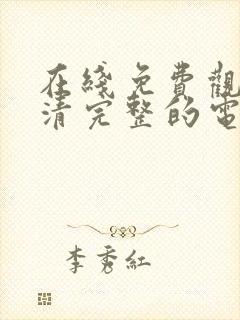 在綫免費觀
清完整的電
李秀紅